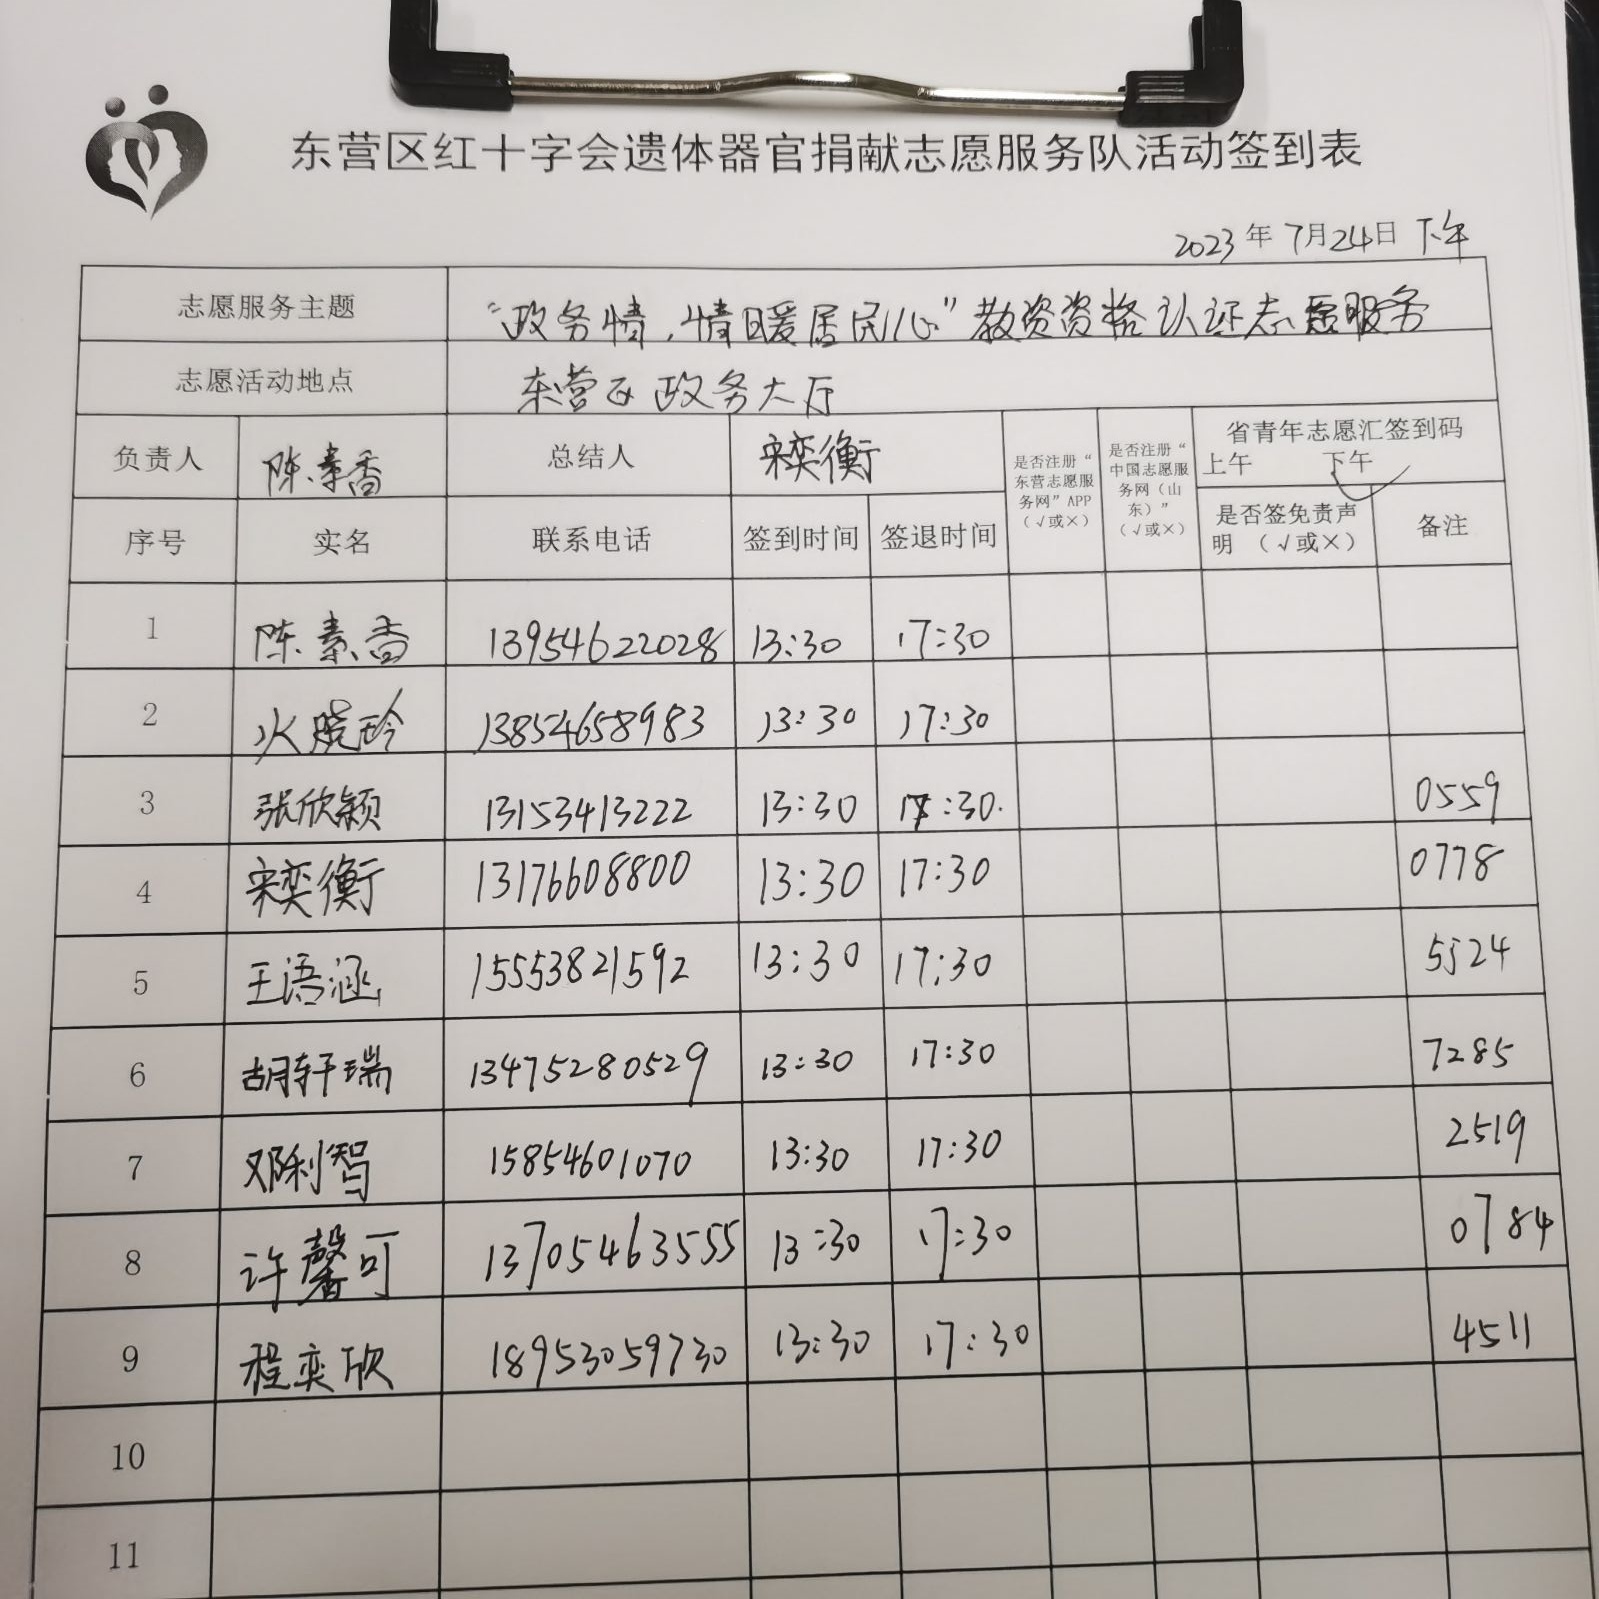 东营区红十字会遗体器官捐献志愿服务队活动签到表
2023年7月24日 下午
志愿服务主题 “政务情，情暖居民心”教资资格认证志愿服务
志愿活动地点 东营区政务大厅
负责人 陈素香 总结人 宋奕衡 是否注册“东营志愿服务网”APP（√或×） 是否注册“中国志愿服务网（山东）”（√或×） 省青年志愿汇签到码 上午 下午 ✓
序号 实名 联系电话 签到时间 签退时间 是否签免责声明 （√或×） 备注
1 陈素香 13954622028 13:30 17:30
2 火晓玲 13854658983 13:30 17:30
3 张欣颖 13153413222 13:30 17:30. 0559
4 宋奕衡 13176608800 13:30 17:30 0778
5 王语涵 15553821592 13:30 17:30 5524
6 胡轩瑞 13475280529 13:30 17:30 7285
7 邓利智 15854601070 13:30 17:30 2519
8 许馨可 13705463555 13:30 17:30 0784
9 程奕欣 18953059730 13:30 17:30 4511
10
11